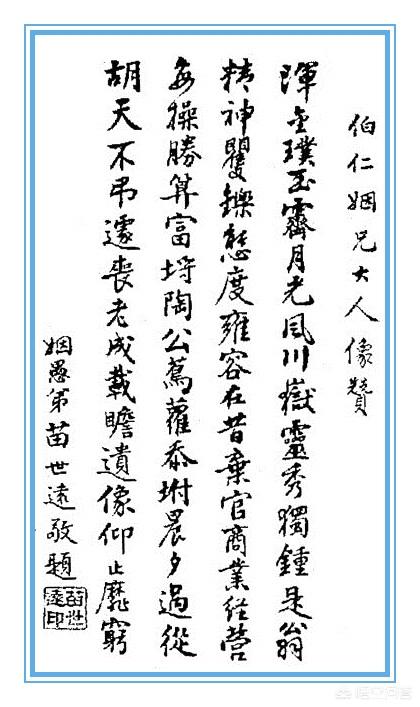 伯仁姻兄大人像贊
渾金璞玉霽月光風川嶽靈秀獨鍾是翁
精神矍鑠態度雍容在昔棄官商業經營
每操勝算富埒陶公蔦蘿忝坿晨夕過從
胡天不弔遽喪老成載瞻遺像仰止靡窮
姻愚弟苗世遠敬題
苗世遠印
悟空问答